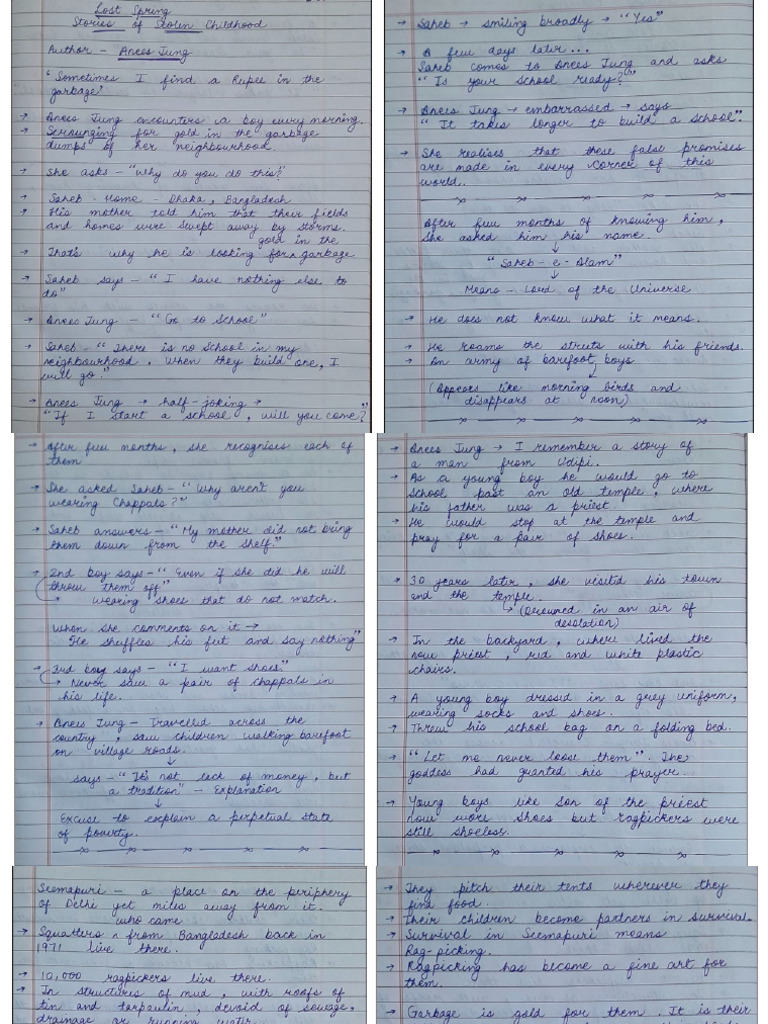 Lost Spring
Stories of Stolen Childhood
Author - Anees Jung
"Sometimes I find a Rupee in the
garbage'
→ Anees Jung encounters a boy every morning.
→ Scrounging for gold in the garbage
dumps of her neighbourhood.
→ She asks - "Why do you do this?"
→ Saheb - Home - Dhaka, Bangladesh
→ His mother told him that their fields
and homes were swept away by storms.
gold in the
→ That's why he is looking for ^ garbage
→ Saheb says - "I have nothing else to
do"
→ Anees Jung - "Go to School"
→ Saheb - "There is no School in my
neighbourhood. When they build one, I
will go."
→ Anees Jung → half-joking →
"If I start a school, will you come?
→ Saheb → smiling broadly → "Yes"
→ A few days later...
Saheb comes to Anees Jung and asks
"Is your school ready?"
→ Anees Jung → embarrassed → says
"It takes longer to build a school".
→ She realises that these false promises
are made in every corner of this
world.
After few months of knowing him,
she asked him his name.
"Saheb-e-Alam"
Means - Lord of the Universe
→ He does not know what it means.
→ He roams the streets with his friends.
→ An army of barefoot boys
(Appears like morning birds and
disappears at noon)
→ After few months, she recognises each of
them
→ She asked Saheb - "Why aren't you
wearing Chappals?"
→ Saheb answers - "My mother did not bring
them down from the shelf."
→ 2nd boy says - "Even if she did he will
throw them off"
→ wearing shoes that do not match.
When she comments on it →
He shuffles his feet and say nothing"
→ 3rd boy says - "I want shoes."
→ Never saw a pair of chappals in
his life.
→ Anees Jung - Travelled across the
country, saw children walking barefoot
on village roads.
says - "It's not lack of money, but
a tradition" - Explanation
Excuse to explain a perpetual state
of poverty.
→ Anees Jung → I remember a story of
a man from Udipi.
→ As a young boy he would go to
school past an old temple, where
his father was a priest
→ He would stop at the temple and
pray for a pair of shoes.
→ 30 years later, she visited his town
and the temple.
→ (Drowned in an air of
desolation)
→ In the backyard, where lived the
new priest, red and white plastic
chairs.
→ A young boy dressed in a grey uniform,
wearing socks and shoes.
→ Threw his school bag on a folding bed.
→ "Let me never loose them". The
goddess had granted his prayer.
→ Young boys like son of the priest
now wore shoes but ragpickers were
still shoeless.
Seemapuri - a place on the periphery
of Delhi yet miles away from it.
who came
→ Squatters ^ from Bangladesh back in
1971 live there.
→ 10,000 ragpickers live there.
→ In structures of mud, with roofs of
tin and tarpaulin, devoid of sewage,
drainage or running water.
→ They pitch their tents wherever they
find food.
→ Their children become partners in survival.
→ Survival in Seemapuri means
Rag-picking.
→ Ragpicking has become a fine art for
them.
→ Garbage is gold for them. It is their